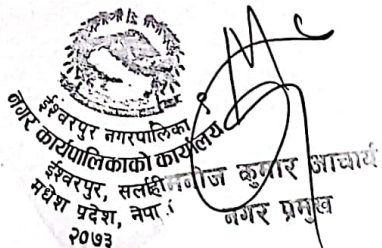 ईश्वरपुर नगरपालिका
नगर कार्यपालिकाको कार्यालय
ईश्वरपुर, सर्लाही
मधेश प्रदेश, नेपाल
२०७३
मनोज कुमार आचार्य
नगर प्रमुख